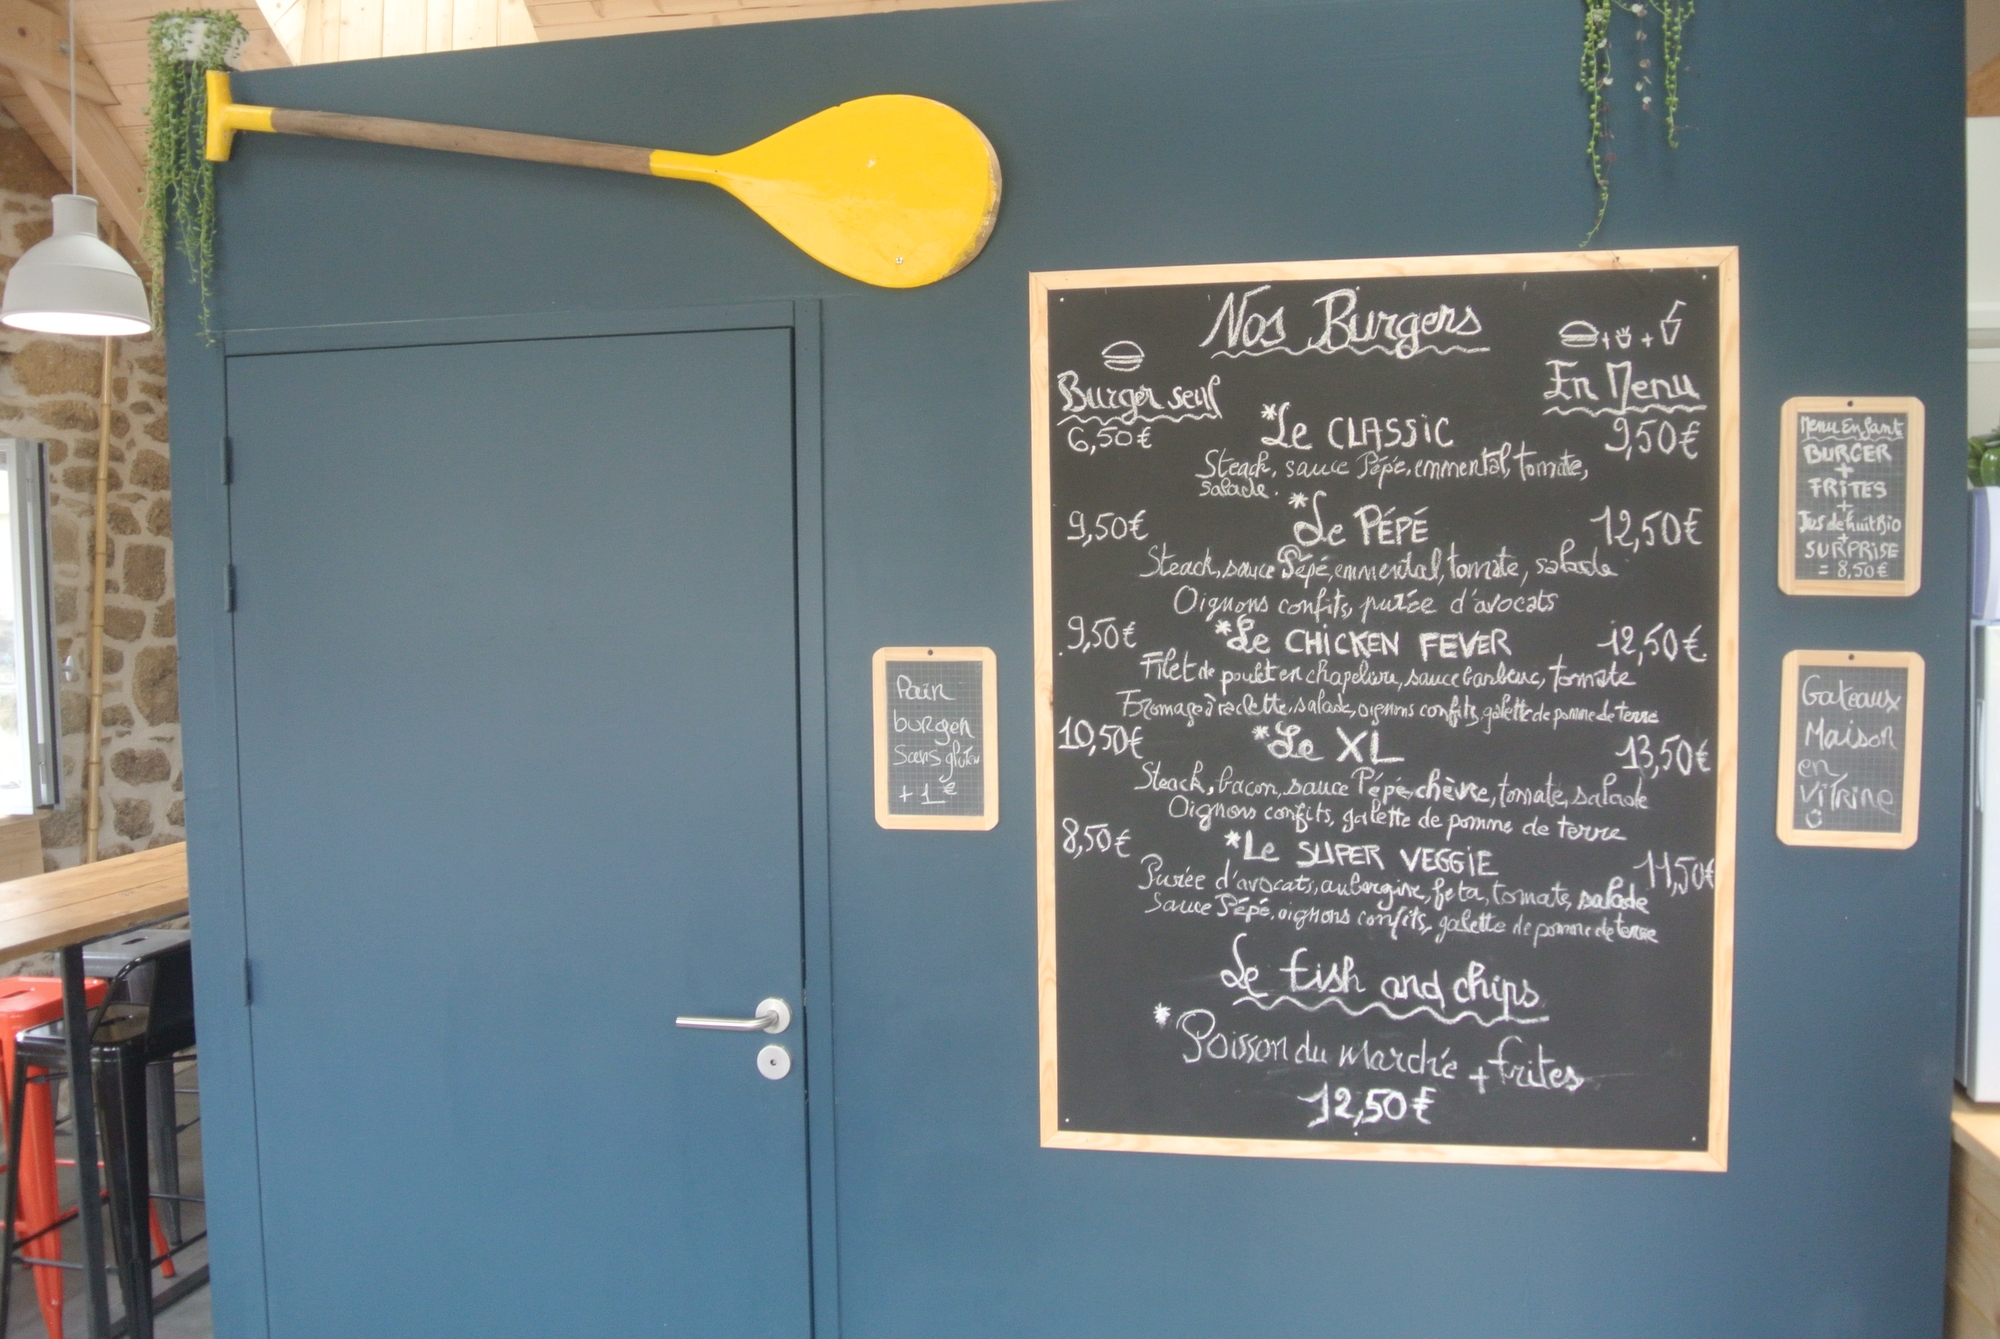 Nos Burgers
Burger seul
En Menu
6,50€ *Le CLASSIC 9,50€
Steack, sauce Pépé, emmental, tomate,
salade.
9,50€ *Le PÉPÉ 12,50€
Steack, sauce Pépé, emmental, tomate, salade
Oignons confits, purée d'avocats
9,50€ *Le CHICKEN FEVER 12,50€
Filet de poulet en chapelure, sauce barbecue, tomate
Fromage à raclette, salade, oignons confits, galette de pomme de terre
10,50€ *Le XL 13,50€
Steack, bacon, sauce Pépé, chèvre, tomate, salade
Oignons confits, galette de pomme de terre
8,50€ *Le SUPER VEGGIE 11,50€
Purée d'avocats, aubergine, feta, tomate, salade
Sauce Pépé, oignons confits, galette de pomme de terre
Le fish and chips
*Poisson du Marché + frites
12,50€
Pain
burger
Sans gluten
+ 1€
Menu Enfant
BURGER
+
FRITES
+
Jus de fruit Bio
+
SURPRISE
= 8,50€
Gateaux
Maison
en
ViTRiNE